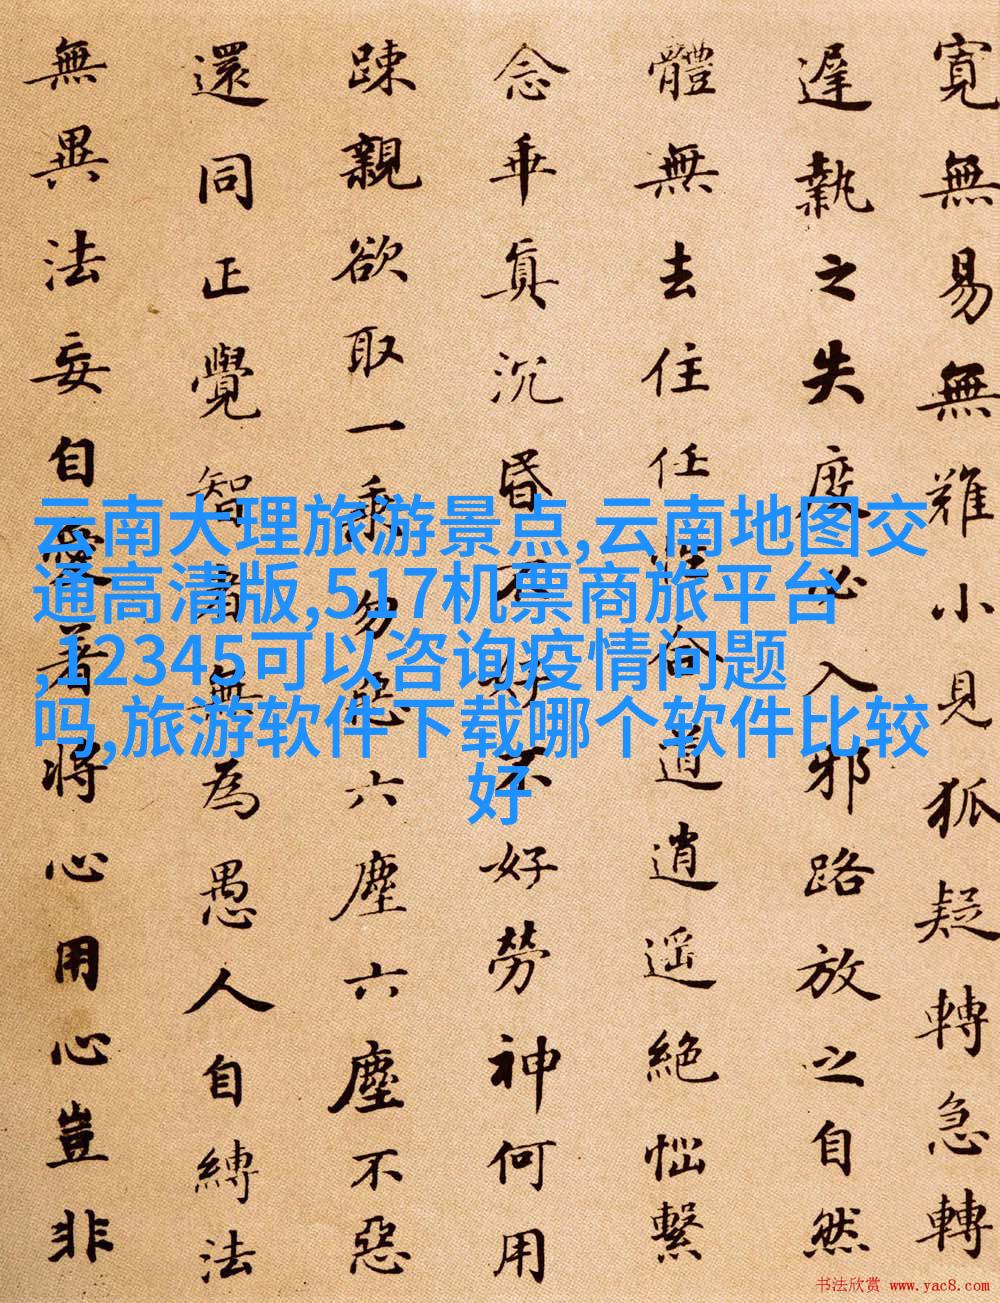 寬無易無難小見狐疑轉急轉
遲執之失度必入邪路放之自然
體無去住任性合道逍遥絶惱繫
念乖真沉昏不好不好勞神何用
踈親欲取一乘勿惡六塵六塵不惡
還同正覺智者無為愚人自縛法
無異法妄自愛著將心用心豈非
云南大理旅游景点,云南地图交
通高清版,517机票商旅平台
,12345可以咨询疫情问题
吗,旅游软件下载哪个软件比较
好
书法欣赏 www.yac8.com